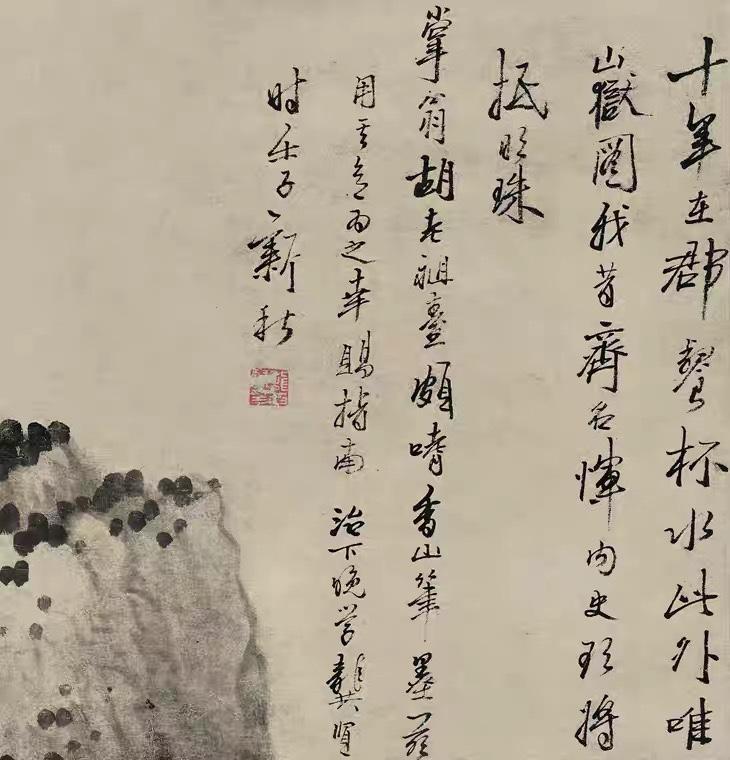 十年在郡杯水此外唯
山嶽圖我昔齊名惲內史將
抵明珠
掌翁胡老祖臺頗嗜香山筆墨茲
用其意為之幸賜指南 治下晚學龔賢
時壬子新秋